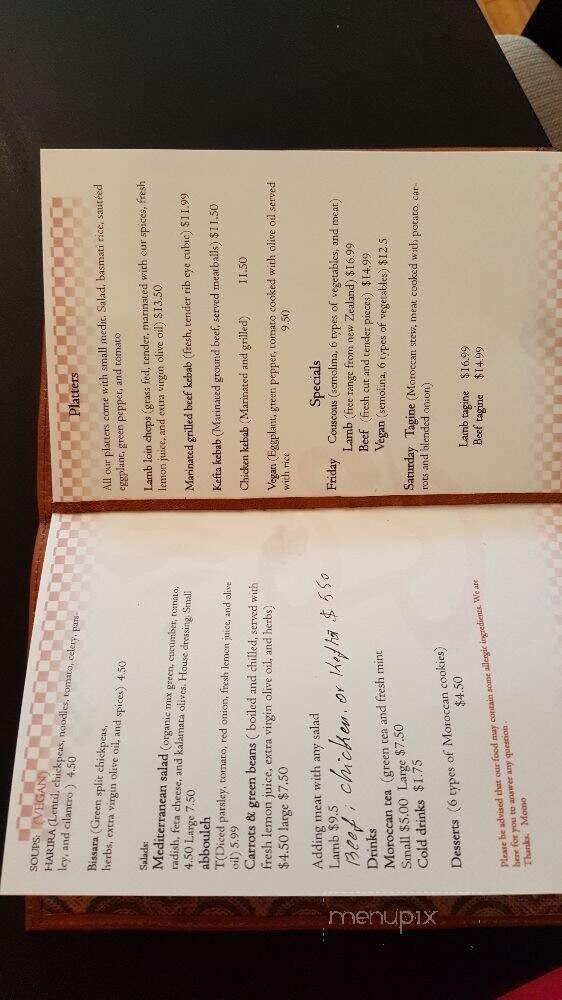 SOUPS: (VEGAN)
HARIRA (Lentil, chickpeas, noodles, tomato, celery, pars-
ley, and cilantro ) 4.50
Bissara (Green split chickpeas,
herbs, extra virgin olive oil, and spices) 4.50
Salads:
Mediterranean salad (organic mix green, cucumber, tomato,
radish, feta cheese, and kalamata olives. House dressing. Small
4.50 Large 7.50
abbouleh
T(Diced parsley, tomato, red onion, fresh lemon juice, and olive
oil) 5.99
Carrots & green beans ( boiled and chilled, served with
fresh lemon juice, extra virgin olive oil, and herbs)
$4.50 large $7.50
Adding meat with any salad
Lamb $9.5
Beef; chicken, or kefta $ 5.50
Drinks
Moroccan tea (green tea and fresh mint
Small $5.00 Large $7.50
Cold drinks $1.75
Desserts (6 types of Moroccan cookies)
$4.50
Please be advised that our food may contain some allergic ingredients. We are
here for you to answer any question .
Thanks. Momo
Platters
All our platters come with small medit. Salad, basmati rice, sautéed
eggplant, green pepper, and tomato
Lamb loin chops (grass fed, tender, marinated with our spices, fresh
lemon juice, and extra virgin olive oil) $13.50
Marinated grilled beef kebab (fresh, tender rib eye cubic) $11.99
Kefta kebab (Marinated ground beef, served meatballs) $11.50
Chicken kebab (Marinated and grilled) 11.50
Vegan (Eggplant, green pepper, tomato cooked with olive oil served
with rice 9.50
Specials
Friday Couscous (semolina, 6 types of vegetables, and meat)
Lamb (free range from new Zealand) $16.99
Beef (fresh cut and tender pieces) $14.99
Vegan (semolina, 6 types of vegetables) $12.5
Saturday Tagine (Moroccan stew, meat cooked with potato, car-
rots and blended onion)
Lamb tagine $16.99
Beef tagine $14.99
menupix